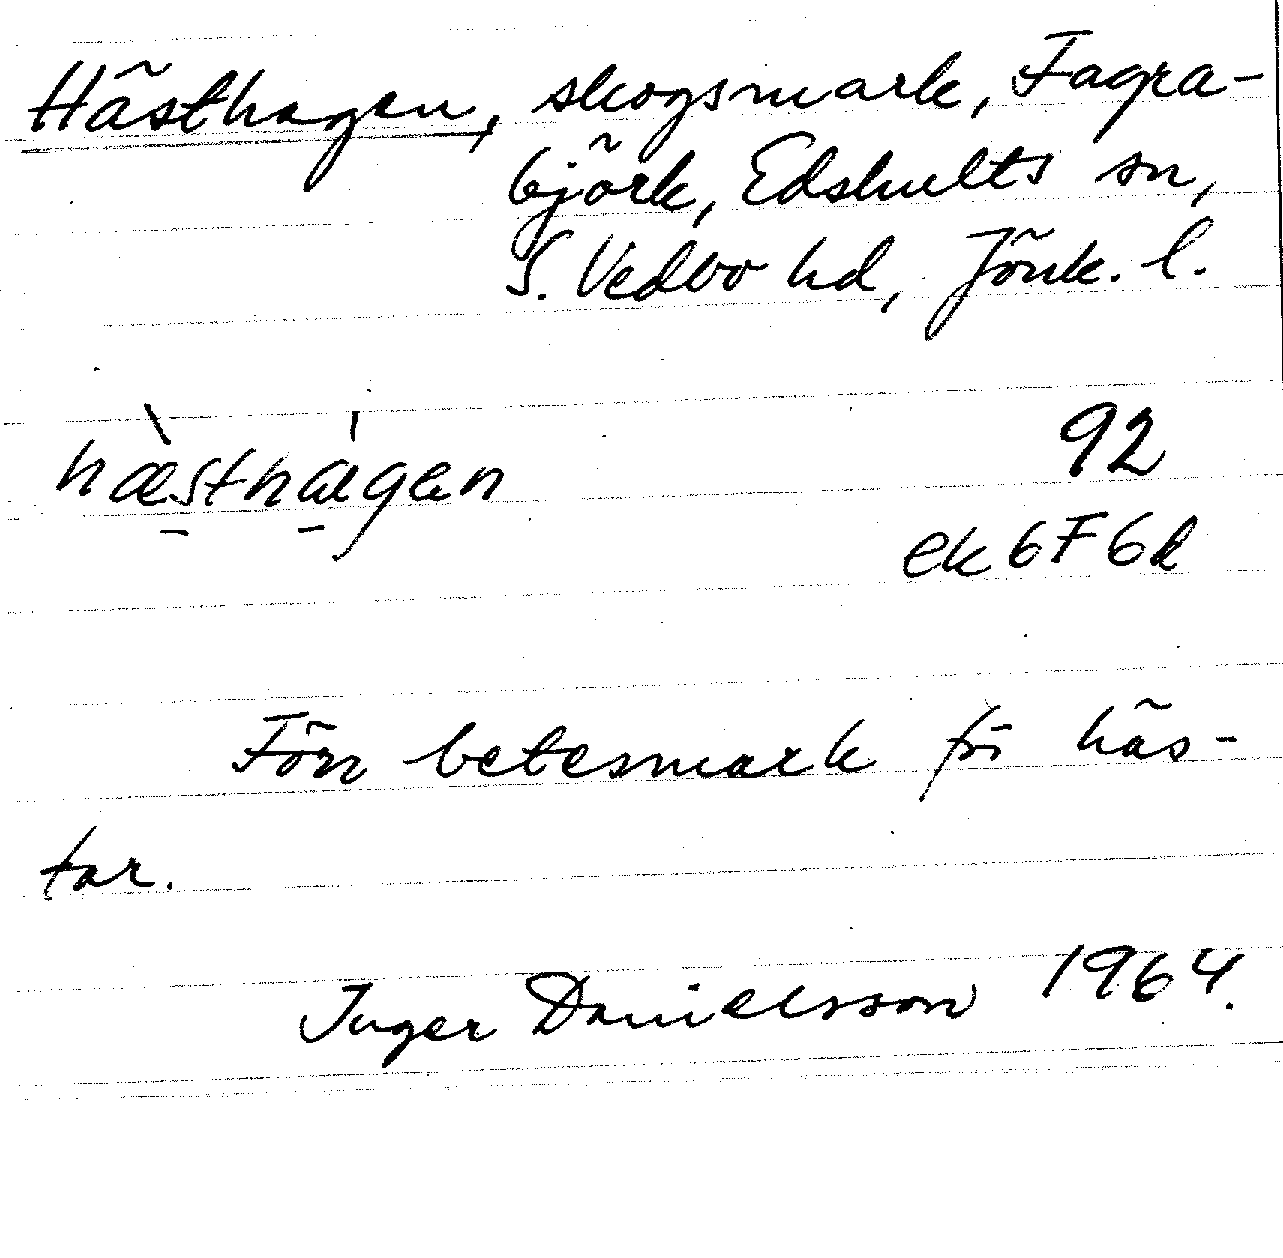 Hästhagen, skogsmark, Fagra-
björk, Edshults sn,
S. Vedbo hd, Jönk. l.
hæ̀sthágen 92
ek 6F6d
Förr betesmark för häs-
tar.
Inger Danielsson 1964.